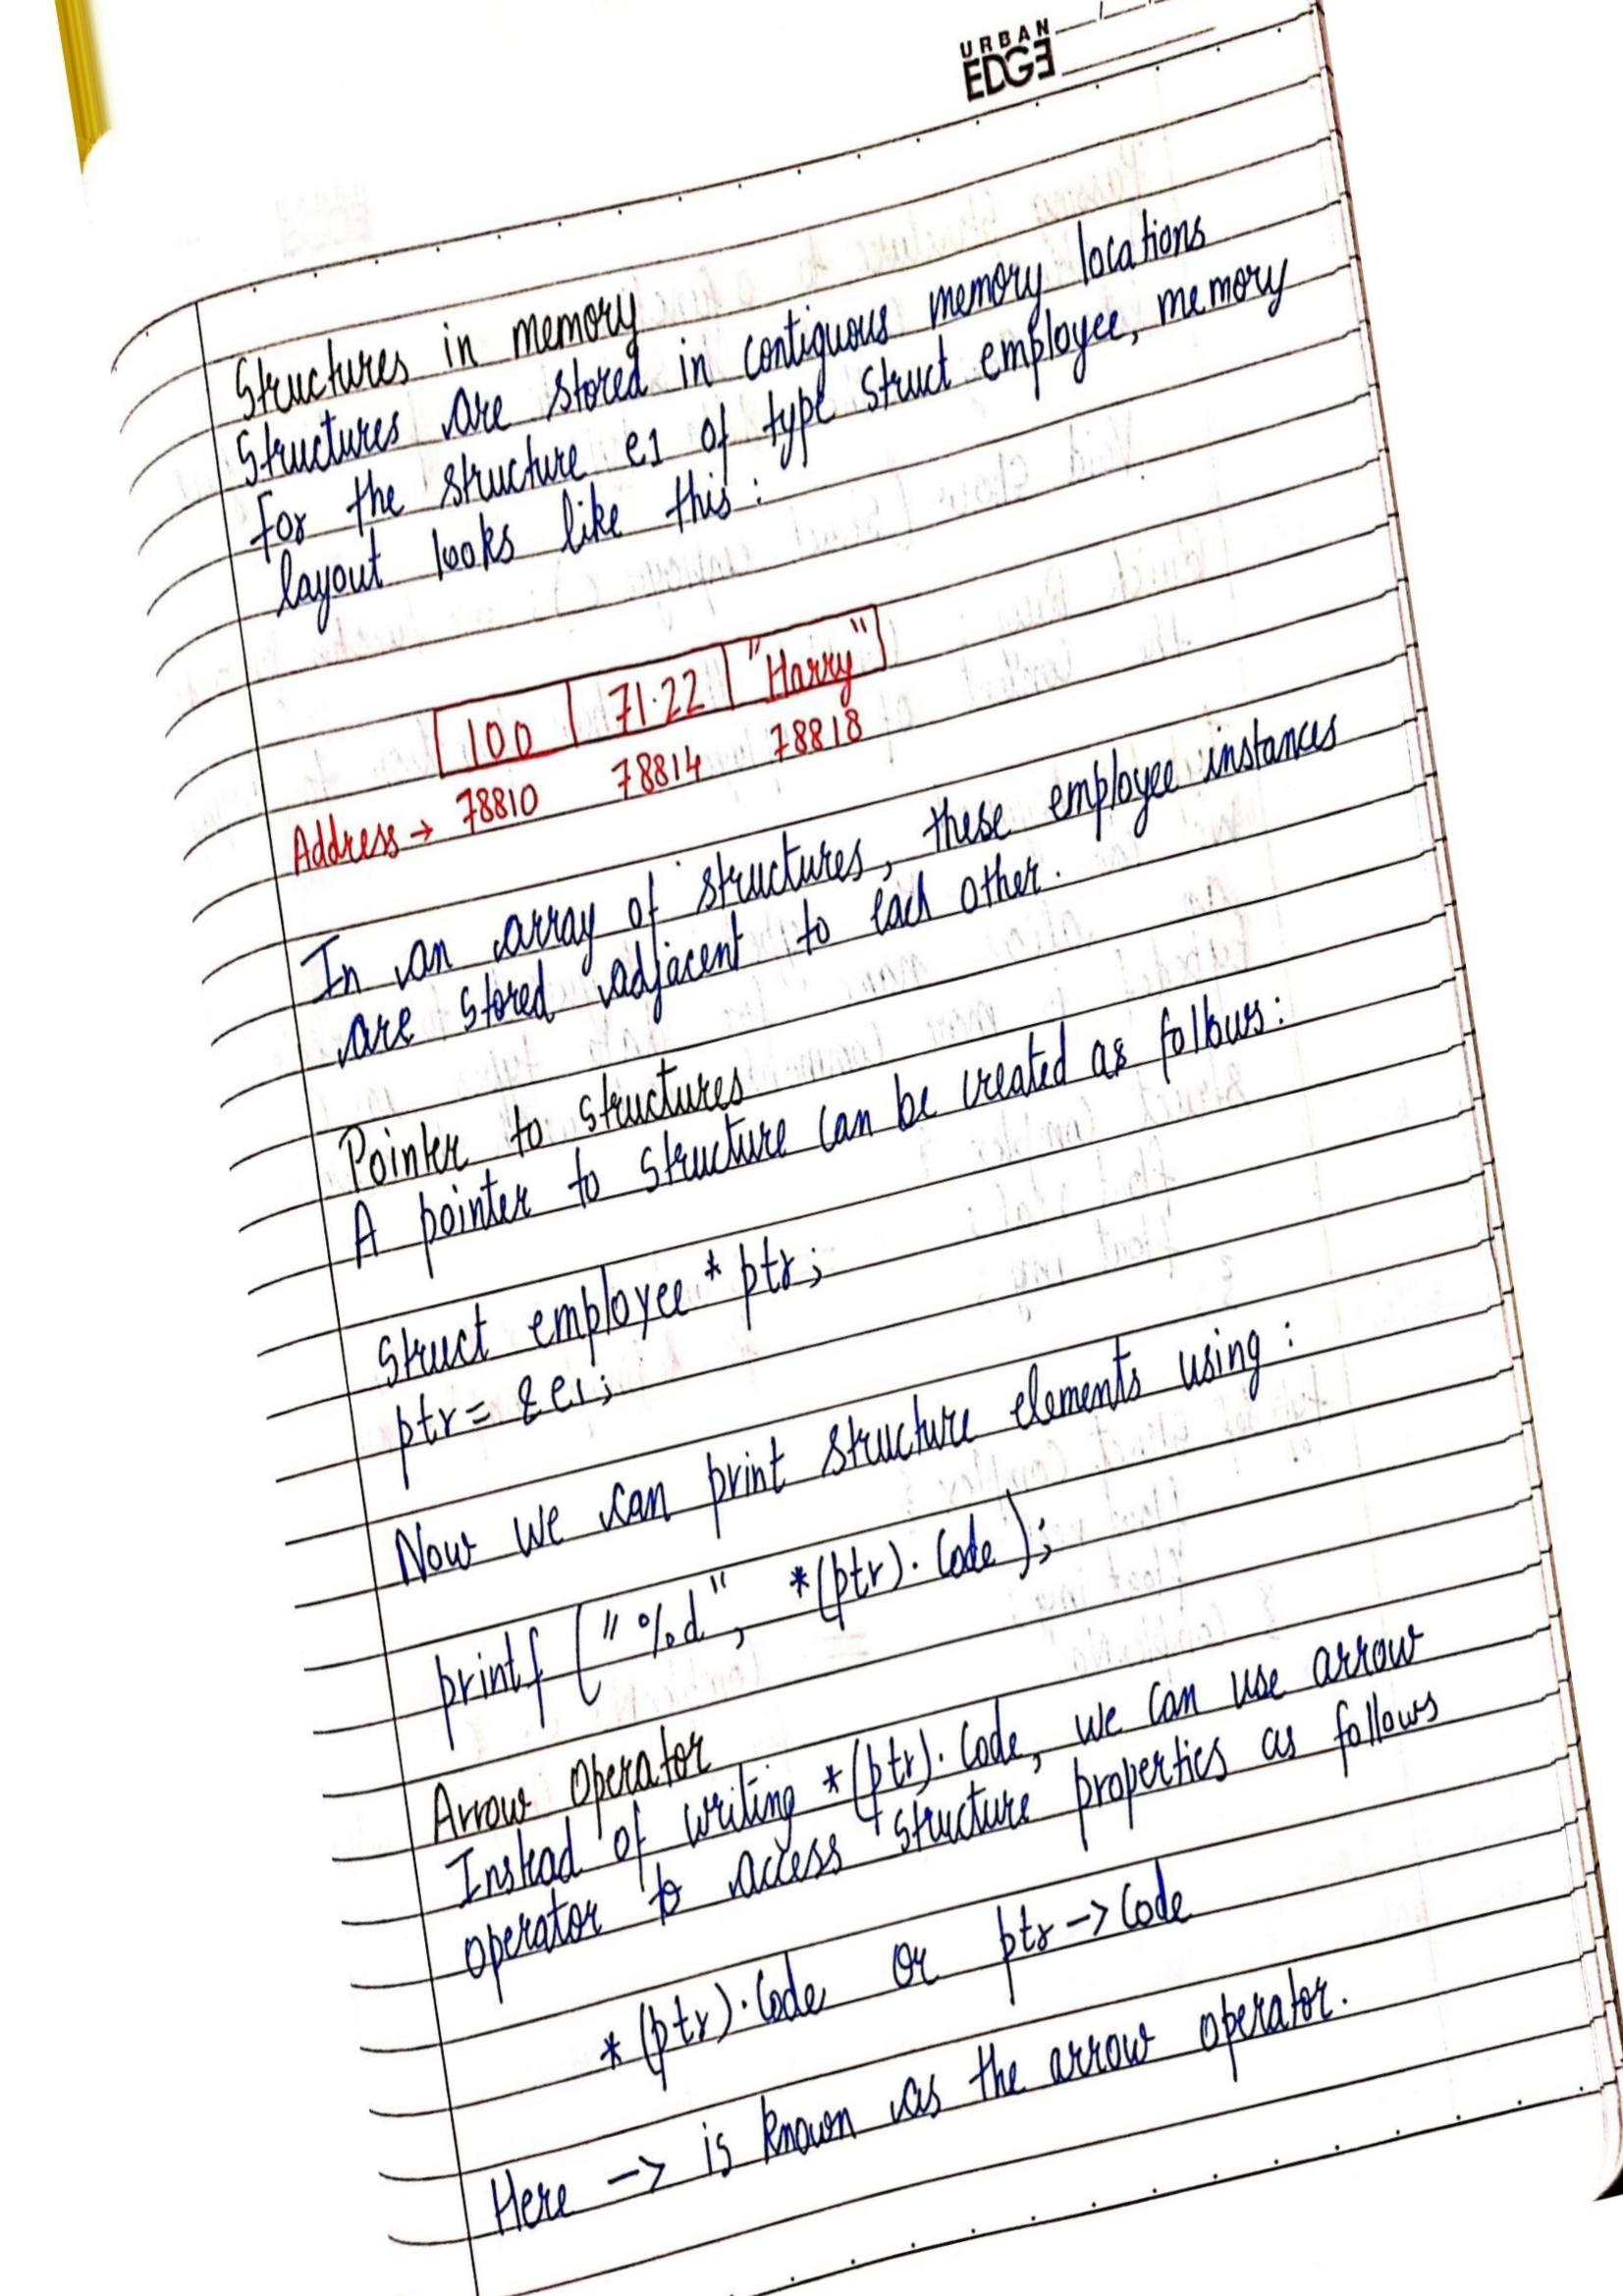 URBAN
EDGE
Structures in memory
Structures are stored in contiguous memory locations
For the structure e1 of type struct employee, memory
layout looks like this:
100 71.22 "Harry"
Address → 78810 78814 78818
In an array of structures, these employee instances
are stored adjacent to each other.
Pointer to structures
A pointer to structure can be created as follows:
Struct employee * ptr;
ptr = &e1;
Now we can print structure elements using:
printf ("%d", *(ptr).Code);
Arrow Operator
Instead of writing *(ptr).Code, we can use arrow
operator to access structure properties as follows
*(ptr).Code or ptr->Code
Here -> is known as the arrow operator.